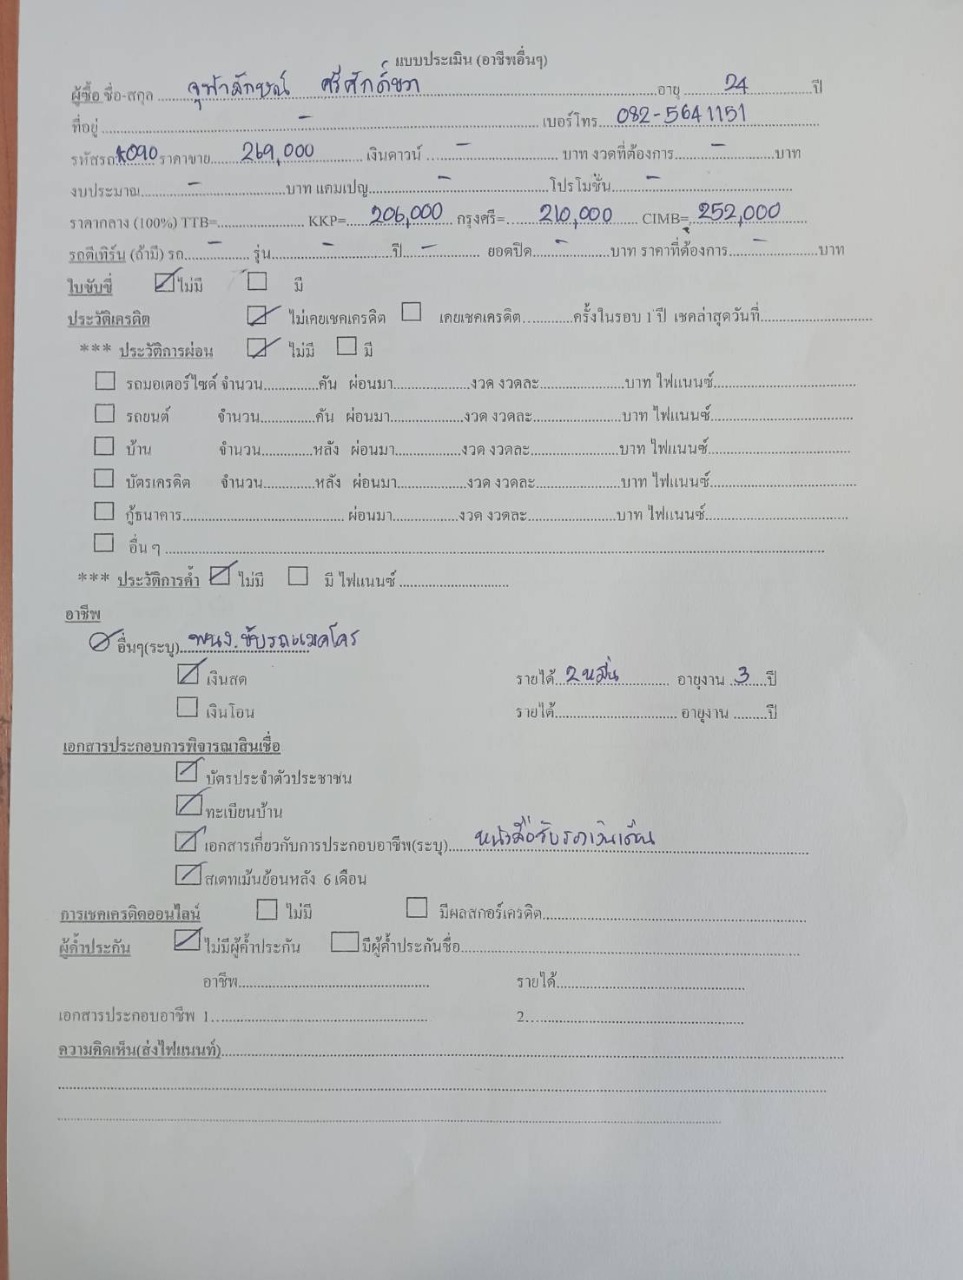 แบบประเมิน (อาชีพอื่นๆ)
ผู้ซื้อ ชื่อ-สกุล ........ จุฬาลักษณ์ ศรีศักดิ์ชวา ........ อายุ ........ 24 ........ ปี
ที่อยู่ ........ - ........ เบอร์โทร.... 082-5641151
รหัสรถ K090 ราคาขาย.... 269,000 .... เงินดาวน์ .... - .... บาท งวดที่ต้องการ.... - .... บาท
งบประมาณ.... - .... บาท แคมเปญ.... - .... โปรโมชั่น.... - ....
ราคากลาง (100%) TTB=........ KKP=.... 206,000 .... กรุงศรี=.... 210,000 .... CIMB= 252,000
รถตีเทิร์น (ถ้ามี) รถ.... - .... รุ่น.... - .... ปี.... - .... ยอดปิด.... - .... บาท ราคาที่ต้องการ.... - .... บาท
ใบขับขี่ ☑ ไม่มี ☐ มี
ประวัติเครดิต ☑ ไม่เคยเชคเครดิต ☐ เคยเชคเครดิต............ครั้งในรอบ 1 ปี เชคล่าสุดวันที่............
*** ประวัติการผ่อน ☑ ไม่มี ☐ มี
☐ รถมอเตอร์ไซด์ จำนวน............คัน ผ่อนมา............งวด งวดละ............บาท ไฟแนนซ์............
☐ รถยนต์ จำนวน............คัน ผ่อนมา............งวด งวดละ............บาท ไฟแนนซ์............
☐ บ้าน จำนวน............หลัง ผ่อนมา............งวด งวดละ............บาท ไฟแนนซ์............
☐ บัตรเครดิต จำนวน............หลัง ผ่อนมา............งวด งวดละ............บาท ไฟแนนซ์............
☐ กู้ธนาคาร............ ผ่อนมา............งวด งวดละ............บาท ไฟแนนซ์............
☐ อื่น ๆ ............
*** ประวัติการค้ำ ☑ ไม่มี ☐ มี ไฟแนนซ์ ............
อาชีพ
อื่นๆ(ระบุ).... พนง.ขับรถแมคโคร
☑ เงินสด รายได้.... 2 หมื่น .... อายุงาน .... 3 .... ปี
☐ เงินโอน รายได้............ อายุงาน .........ปี
เอกสารประกอบการพิจารณาสินเชื่อ
☑ บัตรประจำตัวประชาชน
☑ ทะเบียนบ้าน
☑ เอกสารเกี่ยวกับการประกอบอาชีพ(ระบุ).... หนังสือรับรองเงินเดือน
☑ สเตทเม้นย้อนหลัง 6 เดือน
การเชคเครดิตออนไลน์ ☐ ไม่มี ☐ มีผลสกอร์เครดิต............
ผู้ค้ำประกัน ☑ ไม่มีผู้ค้ำประกัน ☐ มีผู้ค้ำประกันชื่อ............
อาชีพ............ รายได้............
เอกสารประกอบอาชีพ 1............ 2............
ความคิดเห็น(ส่งไฟแนนท์)............